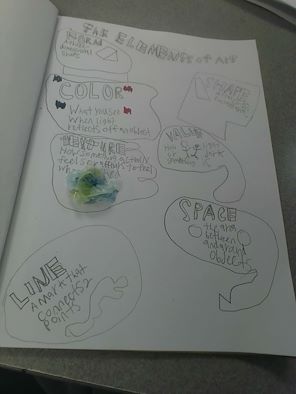 THE ELEMENTS of ART
FORM
A three
dimensional
shape
SHAPE
COLOR
What you see
When light
reflects off an object
VALUE
How
or dark
something is
TEXTURE
How something actually
feels or
LINE
A mark that
connects 2
points
SPACE
the area
between
and around
objects